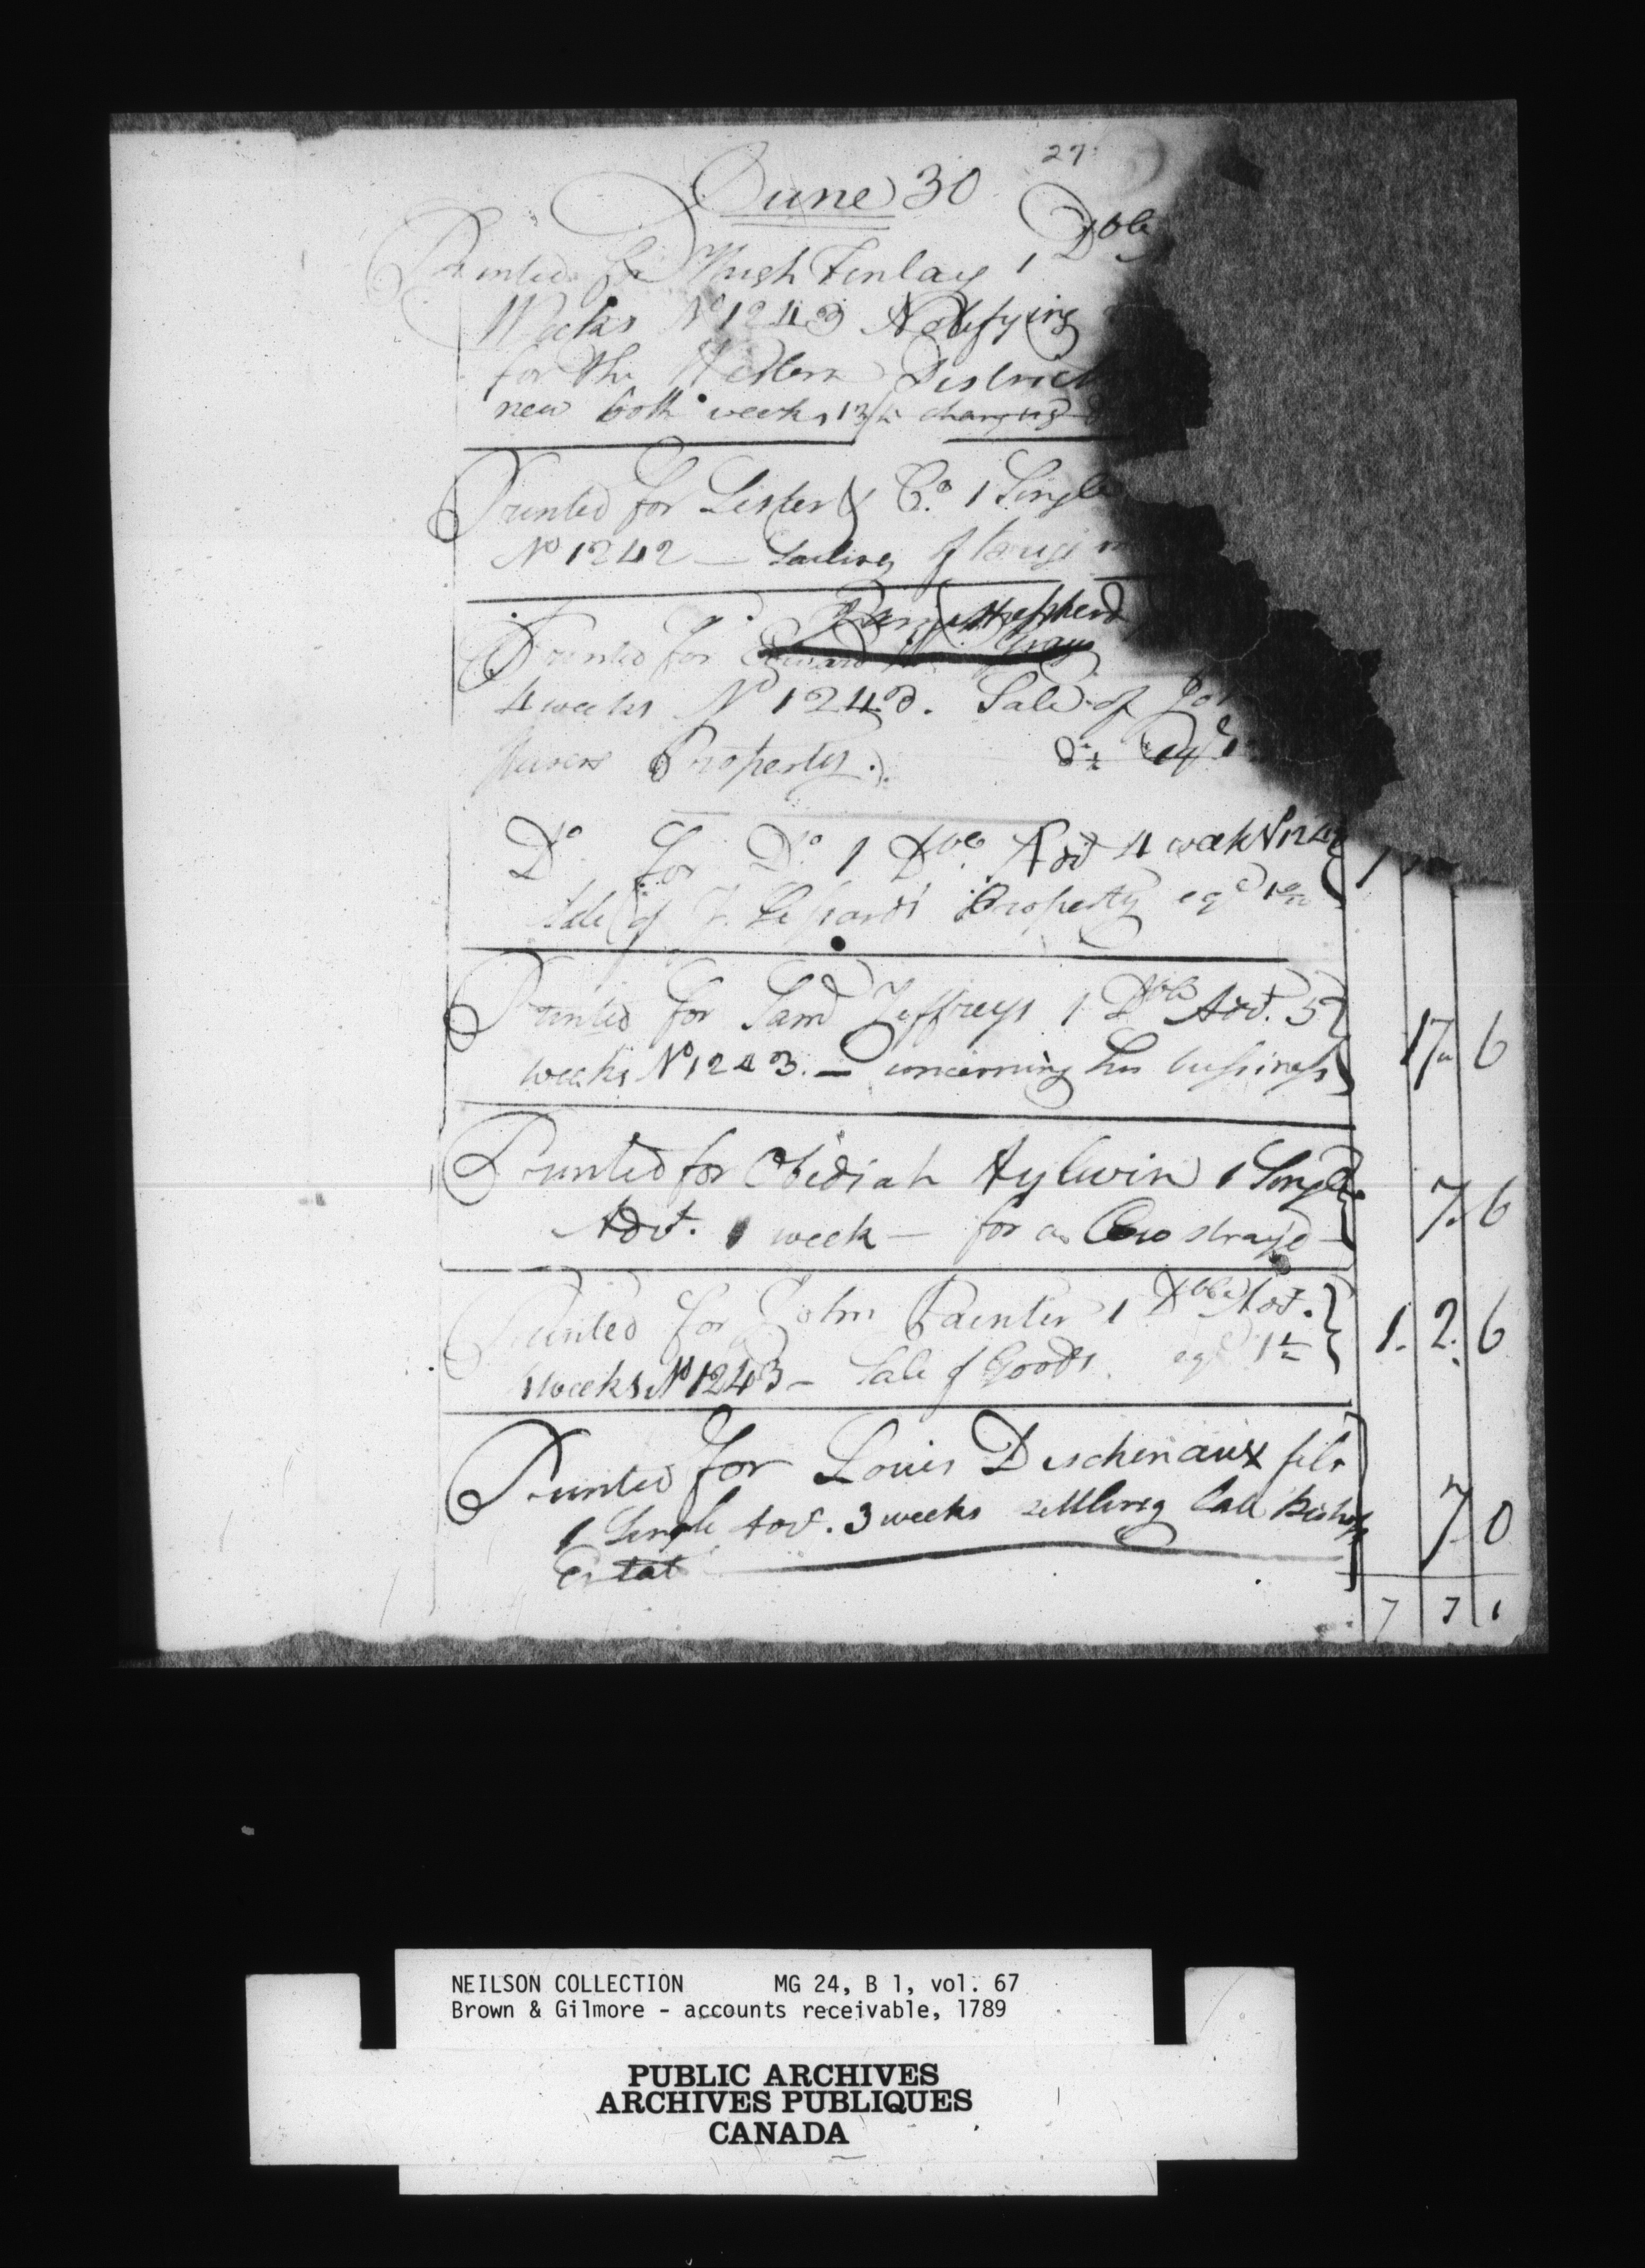 27
June 30
Printed for Hugh Finlay 1 Dble
Weeks No 1243 Notifying
for the Western District
new both weeks
Printed for Lister & Co. 1 Single
No 1242 — Sailing of
Shepherd
Printed for Edward Gray
4 weeks No 1243. Sale of
Property.
Do for Do 1 Dble Adt 4 week
Sale of Property eqd
Printed for Saml Jeffreys 1 Dble Adt. 5
weeks No 1243. — concerning his bussiness 17 6
Printed for Obidiah Aylwin 1 Single
Advt. 1 week — for a Cow strayd 7. 6
Printed for John Painter 1 Dble Adt.
weeks No 1243 — Sale of Goods. eqd 1. 2. 6
Printed for Louis Deschenaux fils
1 Single Adt. 3 weeks settling late Bishops 7 0
Estat
7 7 1
NEILSON COLLECTION MG 24, B 1, vol. 67
Brown & Gilmore - accounts receivable, 1789
PUBLIC ARCHIVES
ARCHIVES PUBLIQUES
CANADA